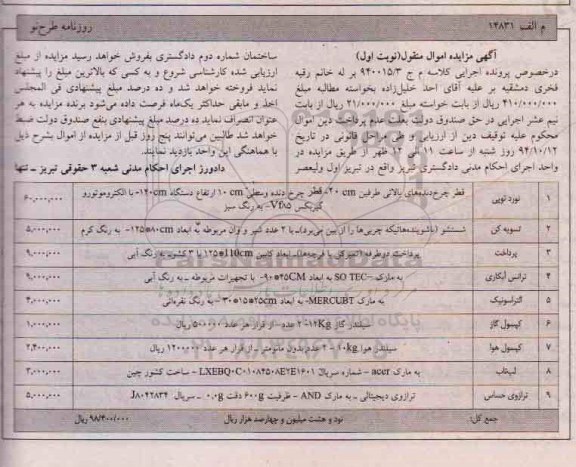 روزنامه طرح‌نو
م الف ۱۴۸۳۱
آگهی مزایده اموال منقول(نوبت اول)
درخصوص پرونده اجرایی کلاسه م ج ۹۴۰۰۱۵/۳ بر له خانم رقیه
فخری دمشقیه بر علیه آقای احد خلیل‌زاده بخواسته مطالبه مبلغ
۴۱۰/۰۰۰/۰۰۰ ریال از بابت خواسته مبلغ ۲۱/۰۰۰/۰۰۰ ریال از بابت
نیم عشر اجرایی در حق صندوق دولت بعلت عدم پرداخت دین اموال
محکوم علیه توقیف دین از ارزیابی و طی مراحل قانونی در تاریخ
۹۴/۱۰/۱۲ روز شنبه از ساعت ۱۱ الی ۱۲ ظهر از طریق مزایده در
واحد اجرای احکام مدنی دادگستری تبریز واقع در تبریز اول ولیعصر
ساختمان شماره دوم دادگستری بفروش خواهد رسید مزایده از مبلغ
ارزیابی شده کارشناسی شروع و به کسی که بالاترین مبلغ را پیشنهاد
نماید فروخته خواهد شد و ده درصد مبلغ پیشنهادی فی المجلس
اخذ و مابقی حداکثر یک‌ماه فرصت داده می‌شود برنده مزایده به هر
عنوان انصراف نماید ده درصد مبلغ پیشنهادی بنفع صندوق دولت ضبط
خواهد شد طالبین می‌توانند پنج روز قبل از مزایده از اموال بشرح ذیل
با هماهنگی این واحد بازدید نمایند.
دادورز اجرای احکام مدنی شعبه ۳ حقوقی تبریز ـ تنها
۱ نورد توپی قطر چرخ‌دنده‌های بالائی طرفین ۲۰cm- قطر چرخ دنده وسطی ۱۰cm ارتفاع دستگاه ۱۲۰cm- با الکتروموتورو گیربکس Vf۸۵- به رنگ سبز ۶۰,۰۰۰,۰۰۰
۲ تسویه کن شستشو (باشوینده‌هائیکه چربی‌ها را از بین می‌برد)ـ با ۲ عدد شیر و وان مربوطه به ابعاد ۸۰cm*۱۲۵- به رنگ کرم ۵,۰۰۰,۰۰۰
۳ پرداخت پرداخت دوطرفه ابعاد کابین 110cm*۱۲۵ به رنگ آبی ۹,۰۰۰,۰۰۰
۴ ترانس آبکاری به مارک SO TEC- به ابعاد ۲۵CM*۹۰- با تجهیزات مربوطه ـ به رنگ آبی ۹,۰۰۰,۰۰۰
۵ التراسونیک به مارک MERCUBT- به ابعاد ۲۵cm*۱۵*۳۰- به رنگ نقره‌ائی ۴,۰۰۰,۰۰۰
۶ کپسول گاز سیلندر گاز ۱۴Kg- ۲ عدد - از قرار هر عدد ۵۰۰,۰۰۰ ریال ۱,۰۰۰,۰۰۰
۷ کپسول هوا سیلندر هوا ۱۰kg - ۲ عدد بدون مانومتر ـ از قرار هر عدد ۱,۲۰۰,۰۰۰ ریال ۲,۴۰۰,۰۰۰
۸ لپ‌تاپ به مارک acer – شماره سریال LXEBQ۰C۰۱۰۸۴۵۰۸AE۷E۱۶۰۱ - ساخت کشور چین ۳,۰۰۰,۰۰۰
۹ ترازوی حساس ترازوی دیجیتالی ـ به مارک AND – ظرفیت ۶۰۰g دقت ۰,۰g ـ سریال J۸۰۴۲۸۳۴ ۵,۰۰۰,۰۰۰
جمع کل: نود و هشت میلیون و چهارصد هزار ریال ۹۸/۴۰۰/۰۰۰ ریال
ParsNamadData